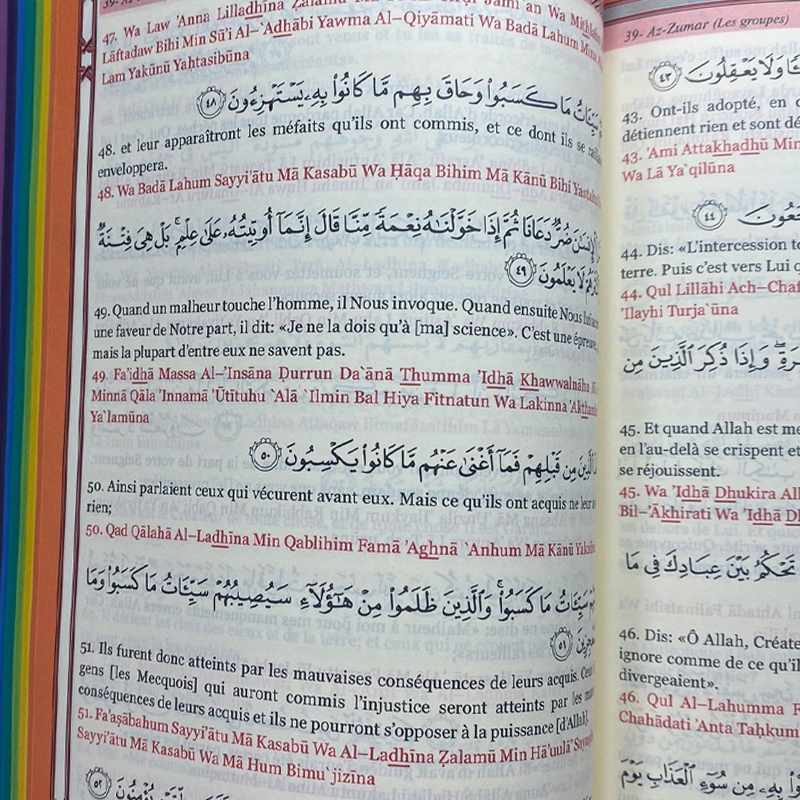 47. Wa Law 'Anna Lilladhīna Zalamū
Lāftadaw Bihi Min Sū'i Al–`Adhābi Yawma Al–Qiyāmati Wa Badā Lahum Mina
Lam Yakūnū Yaḥtasibūna
مَا كَسَبُوا۟ وَحَاقَ بِهِم مَّا كَانُوا۟ بِهِۦ يَسْتَهْزِءُونَ ٤٨
48. et leur apparaîtront les méfaits qu'ils ont commis, et ce dont ils se
enveloppera.
48. Wa Badā Lahum Sayyi'ātu Mā Kasabū Wa Ḥāqa Bihim Mā Kānū Bihi
ضُرٌّ دَعَانَا ثُمَّ إِذَا خَوَّلْنَٰهُ نِعْمَةً مِّنَّا قَالَ إِنَّمَآ أُوتِيتُهُۥ عَلَىٰ عِلْمٍۭ ۚ بَلْ هِىَ فِتْنَةٌ
لَا يَعْلَمُونَ ٤٩
49. Quand un malheur touche l'homme, il Nous invoque. Quand ensuite Nous
une faveur de Notre part, il dit: «Je ne la dois qu'à [ma] science». C'est une épreuve,
mais la plupart d'entre eux ne savent pas.
49. Fa'idhā Massa Al–'Insāna Ḍurrun Da`ānā Thumma 'Idhā Khawwalnāhu
Minnā Qāla 'Innamā 'Ūtītuhu `Alá `Ilmin Bal Hiya Fitnatun Wa Lakinna
Ya`lamūna
مِن قَبْلِهِمْ فَمَآ أَغْنَىٰ عَنْهُم مَّا كَانُوا۟ يَكْسِبُونَ ٥٠
50. Ainsi parlaient ceux qui vécurent avant eux. Mais ce qu'ils ont acquis ne leur
rien;
50. Qad Qālahā Al–Ladhīna Min Qablihim Famā 'Aghná `Anhum Mā Kānū
سَيِّـَٔاتُ مَا كَسَبُوا۟ ۚ وَٱلَّذِينَ ظَلَمُوا۟ مِنْ هَٰٓؤُلَآءِ سَيُصِيبُهُمْ سَيِّـَٔاتُ مَا كَسَبُوا۟ وَمَا
٥١
51. Ils furent donc atteints par les mauvaises conséquences de leurs acquis.
gens [les Mecquois] qui auront commis l'injustice seront atteints par les
conséquences de leurs acquis et ils ne pourront s'opposer à la puissance [d'Allah].
51. Fa'aṣābahum Sayyi'ātu Mā Kasabū Wa Al–Ladhīna Ẓalamū Min Hā'uulā'
Sayyi'ātu Mā Kasabū Wa Mā Hum Bimu`jizīna
٥٢
39- Az-Zumar (Les groupes)
وَلَا يَعْقِلُونَ ٤٣
43. Ont-ils adopté, en
détiennent rien et sont
43. 'Ami Attakhadhū Min
Wa Lā Ya`qilūna
٤٤
44. Dis: «L'intercession
terre. Puis c'est vers Lui
44. Qul Lillāhi Ach–
'Ilayhi Turja`ūna
وَإِذَا ذُكِرَ ٱلَّذِينَ مِن
45. Et quand Allah est
en l'au-delà se crispent et
se réjouissent.
45. Wa 'Idhā Dhukira
Bil–'Ākhirati Wa 'Idhā
تَحْكُمُ بَيْنَ عِبَادِكَ فِى مَا
46. Dis: «Ô Allah,
ignore comme de ce
divergeaient».
46. Qul Al–Lahumma
Chahādati 'Anta Taḥkum
بِهِۦ مِن سُوٓءِ ٱلْعَذَابِ يَوْمَ